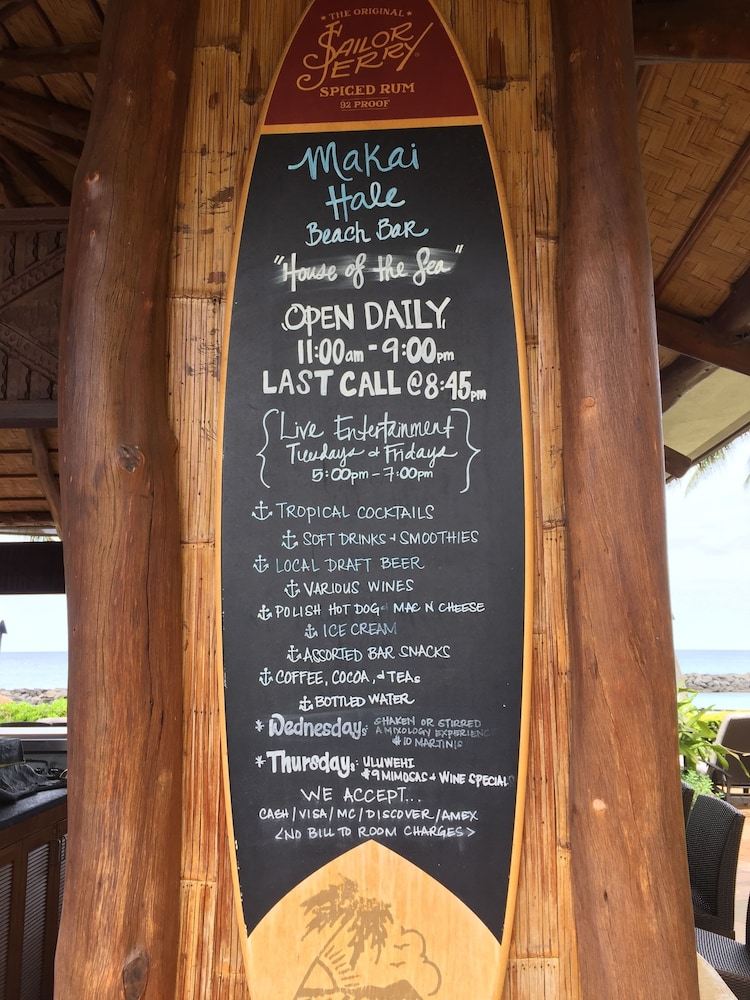 * THE ORIGINAL *
SAILOR
JERRY
SPICED RUM
92 PROOF
Makai
Hale
Beach Bar
"House of the Sea"
OPEN DAILY
11:00am - 9:00pm
LAST CALL @ 8:45pm
{Live Entertainment
Tuesdays & Fridays
5:00pm - 7:00pm}
TROPICAL COCKTAILS
SOFT DRINKS & SMOOTHIES
LOCAL DRAFT BEER
VARIOUS WINES
POLISH HOT DOG & MAC N CHEESE
ICE CREAM
ASSORTED BAR SNACKS
COFFEE, COCOA, & TEAS
BOTTLED WATER
* Wednesdays: SHAKEN OR STIRRED
A MIXOLOGY EXPERIENCE
$10 MARTINIS
* Thursdays: ULUWEHI
$9 MIMOSAS & WINE SPECIAL
WE ACCEPT...
CASH/VISA/MC/DISCOVER/AMEX
<NO BILL TO ROOM CHARGES>